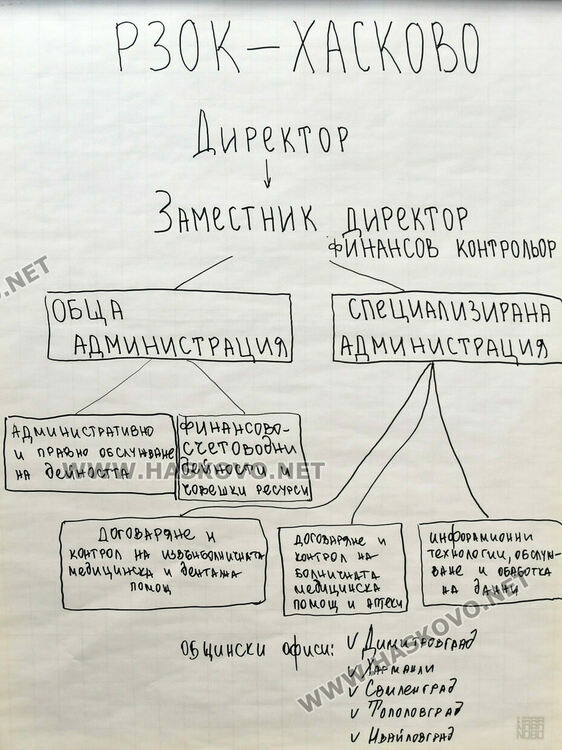 РЗОК – ХАСКОВО
ДИРЕКТОР
ЗАМЕСТНИК ДИРЕКТОР
ФИНАНСОВ КОНТРОЛЬОР
ОБЩА
АДМИНИСТРАЦИЯ
СПЕЦИАЛИЗИРАНА
АДМИНИСТРАЦИЯ
АДМИНИСТРАТИВНО
И ПРАВНО ОБСЛУЖВАНЕ
НА ДЕЙНОСТТА
ФИНАНСОВО-
СЧЕТОВОДНИ
ДЕЙНОСТИ И
ЧОВЕШКИ РЕСУРСИ
ДОГОВАРЯНЕ И
КОНТРОЛ НА ИЗВЪНБОЛНИЧНАТА
МЕДИЦИНСКА И ДЕНТАЛНА
ПОМОЩ
ДОГОВАРЯНЕ И
КОНТРОЛ НА-
БОЛНИЧНАТА
МЕДИЦИНСКА
ПОМОЩ И АПТЕКИ
ИНФОРАМЦИОННИ
ТЕХНОЛОГИИ, ОБСЛУЖ-
ВАНЕ И ОБРАБОТКА
НА ДАННИ
ОБЩИНСКИ ОФИСИ: √ ДИМИТРОВГРАД
√ ХАРМАНЛИ
√ СВИЛЕНГРАД
√ ТОПОЛОВГРАД
√ ИВАЙЛОВГРАД
WWW.HASKOVO.NET
WWW.HASKOVO.NET
O.NET